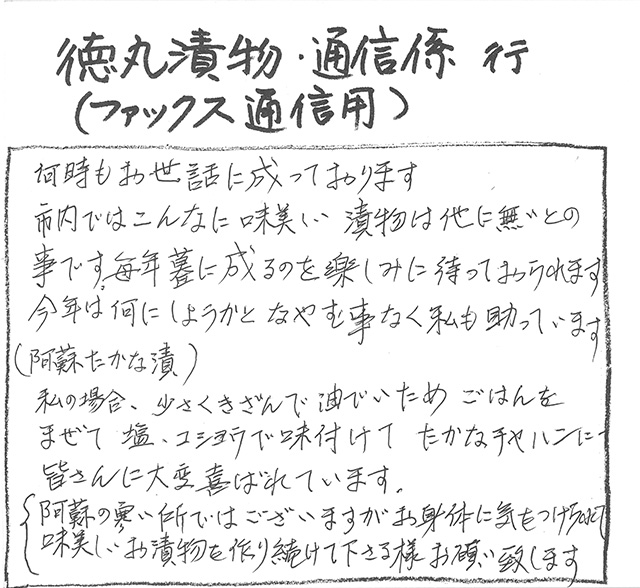 徳丸漬物・通信係 行
(ファックス通信用)
何時もお世話に成っております
市内ではこんなに味美しい漬物は他に無いとの
事です。毎年暮に成るのを楽しみに待っておられます
今年は何にしようかとなやむ事なく私も助っています
(阿蘇たかな漬)
私の場合、少さくきざんで油でいためごはんを
まぜて塩、コショウで味付けてたかなチャハンにて
皆さんに大変喜ばれています。
阿蘇の寒い所ではございますがお身体に気をつけられて
味美しいお漬物を作り続けて下さる様お願い致します